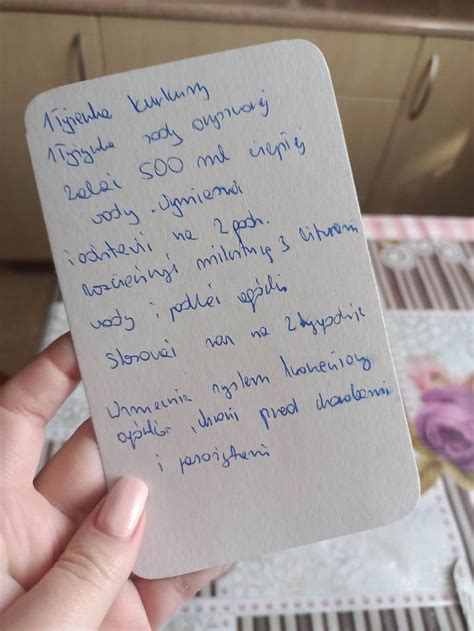 1 łyżeczka kurkumy
1 łyżeczka sody oczyszczonej
zalać 500 ml ciepłej
wody. Wymieszać
i odstawić na 2 godz.
rozcieńczyć miksturę 3 litrami
wody i podlać ogórki
Stosować raz na 2 tygodnie
Wzmacnia system korzeniowy
ogórków, chroni przed chorobami
i pasożytami